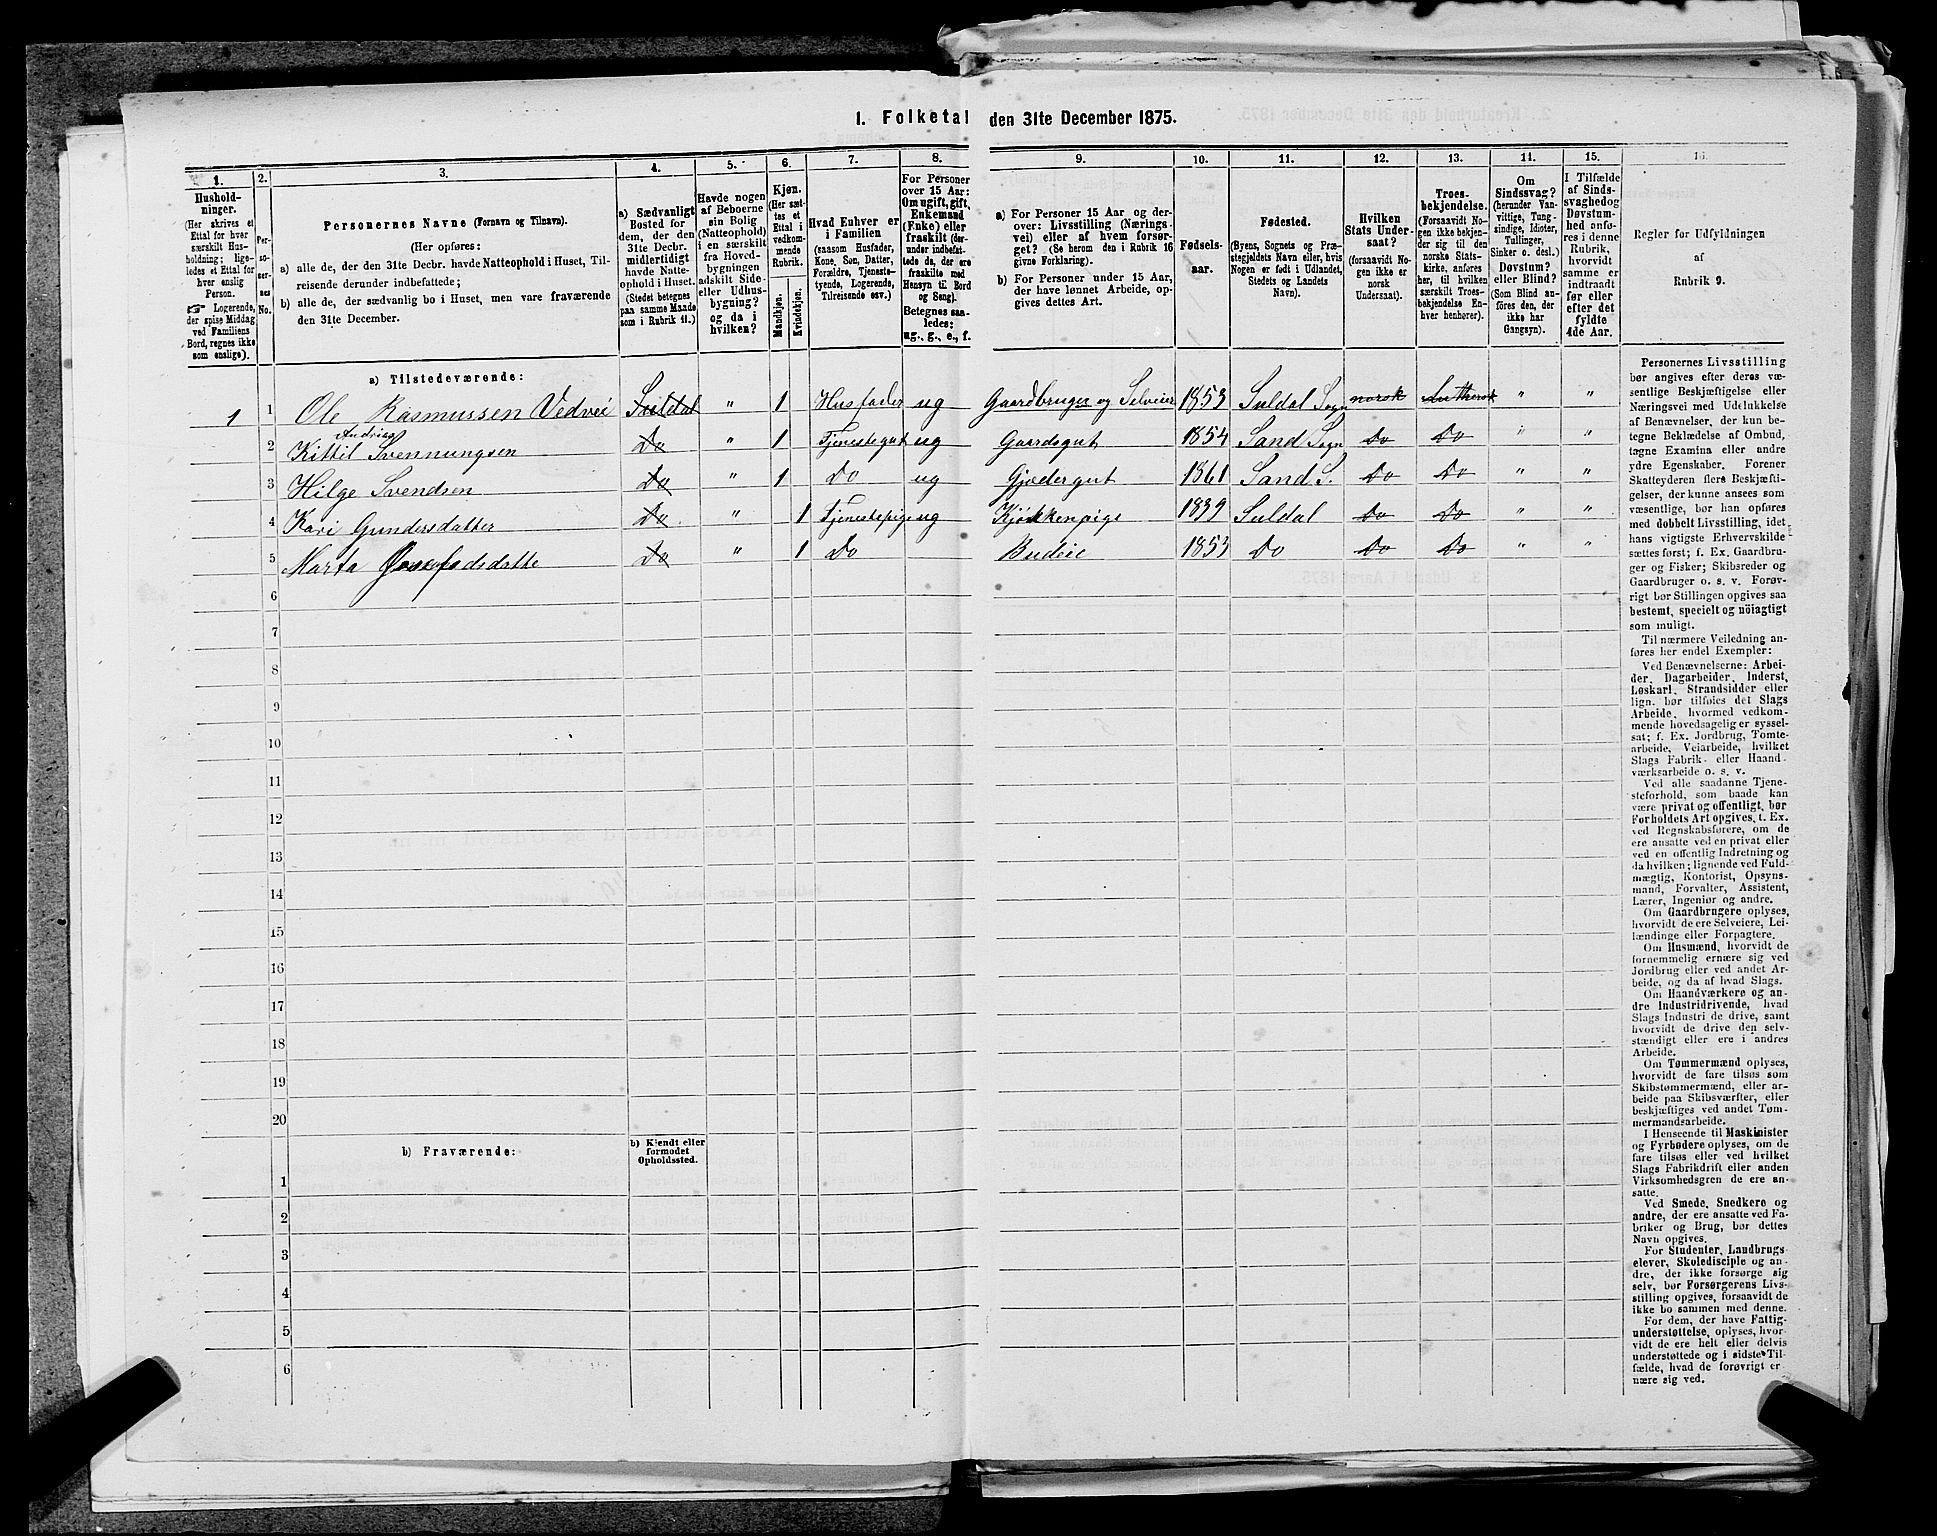 1. Folketal den 31te December 1875.
1.
2.
3.
4.
5.
6.
7.
8.
9.
10.
11.
12.
13.
14.
15.
16.
Hushold-
ninger.
(Her skrives et
Ettal for hver
særskilt Hus-
holdning; lige-
ledes et Ettal for
hver enslig
Person.
☞ Logerende,
der spise Middag
ved Familiens
Bord, regnes ikke
som enslige).
Per-
so-
ner-
nes
No.
Personernes Navne (Fornavn og Tilnavn).
(Her opføres:
a) alle de, der den 31te Decbr. havde Natteophold i Huset, Til-
reisende derunder indbefattede;
b) alle de, der sædvanlig bo i Huset, men vare fraværende
den 31te December.
a) Sædvanligt
Bosted for
dem, der den
31te Decbr.
midlertidigt
havde Natte-
ophold i Huset.
(Stedet betegnes
paa samme Maade
som i Rubrik 11.)
Havde nogen
af Beboerne
sin Bolig
(Natteophold)
i en særskilt
fra Hoved-
bygningen
adskilt Side-
eller Udhus-
bygning?
og da i
hvilken?
Kjøn.
(Her sæt-
tes et
Ettal i
vedkom-
mende
Rubrik.
Mandkjøn.
Kvindekjøn.
Hvad Enhver er
i Familien
(saasom Husfader,
Kone, Søn, Datter,
Forældre, Tjeneste-
tyende, Logerende,
Tilreisende osv.)
For Personer
over 15 Aar:
Om ugift, gift,
Enkemand
(Enke) eller
fraskilt (der-
under indbefat-
tede de, der ere
fraskilte med
Hensyn til Bord
og Seng).
Betegnes saa-
ledes:
ug., g., e., f.
a) For Personer 15 Aar og der-
over: Livsstilling (Nærings-
vei) eller af hvem forsør-
get? (Se herom den i Rubrik 16
givne Forklaring).
b) For Personer under 15 Aar,
der have lønnet Arbeide, op-
gives dettes Art.
Fødsels-
aar.
Fødested.
(Byens, Sognets og Præ-
stegjeldets Navn eller, hvis
Nogen er født i Udlandet,
Stedets og Landets
Navn).
Hvilken
Stats Under-
saat?
(forsaavidt No-
gen ikke er
norsk
Undersaat).
Troes-
bekjendelse.
(Forsaavidt No-
gen ikke bekjen-
der sig til den
norske Stats-
kirke, anføres
her, til hvilken
særskilt Troes-
bekjendelse En-
hver henhører).
Om
Sindssvag?
(herunder Van-
vittige, Tung-
sindige, Idioter,
Tullinger,
Sinker o. desl.)
Døvstum?
eller Blind?
(Som Blind an-
føres den, der
ikke har
Gangsyn).
I Tilfælde
af Sinds-
svaghed og
Døvstum-
hed anfø-
res i denne
Rubrik,
hvorvidt
samme er
indtraadt
før eller
efter det
fyldte
4de Aar.
Regler for Udfyldningen
af
Rubrik 9.
a) Tilstedeværende:
1 1 Ole Rasmussen Vedvei Suldal " 1 Husfader ug Gaardbruger og Selveier 1853 Suldal Sogn norsk Luthersk " "
Andrias
2 Kittil Svennungsen Do " 1 Tjenestegut ug Gaardsgut 1854 Sand Sogn Do Do " "
3 Hilge Svendsen Do " 1 Do ug Gjødergut 1861 Sand S. Do Do " "
4 Kari Gundersdatter Do " 1 Tjenestepige ug Kjøkkenpige 1839 Suldal Do Do " "
5 Marta Do " 1 Do Budeie 1853 Do Do Do " "
6
7
8
9
10
11
12
13
14
15
16
17
18
19
20
b) Fraværende:
b) Kjendt eller
formodet
Opholdssted.
1
2
3
4
5
6
Personernes Livsstilling
bør angives efter deres væ-
sentlige Beskjæftigelse eller
Næringsvei med Udelukkelse
af Benævnelser, der kun be-
tegne Beklædelse af Ombud,
tagne Examina eller andre
ydre Egenskaber. Forener
Skatteyderen flere Beskjæfti-
gelser, der kunne ansees som
væsentlige, bør han opføres
med dobbelt Livsstilling, idet
hans vigtigste Erhvervskilde
sættes først; f. Ex. Gaardbru-
ger og Fisker; Skibsreder og
Gaardbruger o. s. v. Forøv-
rigt bør Stillingen opgives saa
bestemt, specielt og nöiagtigt
som muligt.
Til nærmere Veiledning an-
føres her endel Exempler:
Ved Benævnelserne: Arbei-
der, Dagarbeider, Inderst,
Løskarl, Strandsidder eller
lign. bør tilføies det Slags
Arbeide, hvormed vedkom-
mende hovedsagelig er syssel-
sat; f. Ex. Jordbrug, Tomte-
arbeide, Veiarbeide, hvilket
Slags Fabrik- eller Haand-
værksarbeide o. s. v.
Ved alle saadanne Tjene-
steforhold, som baade kan
være privat og offentligt, bør
Forholdets Art opgives, t. Ex.
ved Regnskabsførere, om de
ere ansatte ved en privat eller
ved en offentlig Indretning og
da hvilken; lignende ved Fuld-
mægtig, Kontorist, Opsyns-
mand, Forvalter, Assistent,
Lærer, Ingeniør og andre.
Om Gaardbrugere oplyses,
hvorvidt de ere Selveiere, Lei-
lændinge eller Forpagtere.
Om Husmænd, hvorvidt de
fornemmelig ernære sig ved
Jordbrug eller ved andet Ar-
beide, og da af hvad Slags.
Om Haandværkere og an-
dre Industridrivende, hvad
Slags Industri de drive, samt
hvorvidt de drive den selv-
stændigt eller ere i andres
Arbeide.
Om Tømmermænd oplyses,
hvorvidt de fare tilsøs som
Skibstømmermænd, eller ar-
beide paa Skibsværfter, eller
beskjæftiges ved andet Tøm-
mermandsarbeide.
I Henseende til Maskinister
og Fyrbødere oplyses, om de
fare tilsøs eller ved hvilket
Slags Fabrikdrift eller anden
Virksomhedsgren de ere an-
satte.
Ved Smede, Snedkere og
andre, der ere ansatte ved Fa-
briker og Brug, bør dettes
Navn opgives.
For Studenter, Landbrugs-
elever, Skoledisciple og an-
dre, der ikke forsørge sig
selv, bør Forsørgerens Livs-
stilling opgives, forsaavidt de
ikke bo sammen med denne.
For dem, der have Fattig-
understøttelse, oplyses, hvor-
vidt de ere helt eller delvis
understøttede og i sidste Til-
fælde, hvad de forøvrigt er-
nære sig ved.